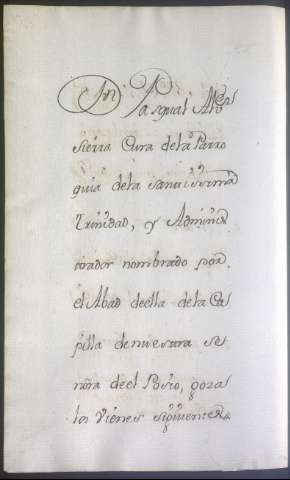 Dn Pasqual Alos
sierra Cura dela Parro
quia dela santissima
Trinidad, y Adminis
trador nombrado por
el Abad deella dela Ca
pilla denuestra se
ñora deel Posio, goza
los Vienes siguientes